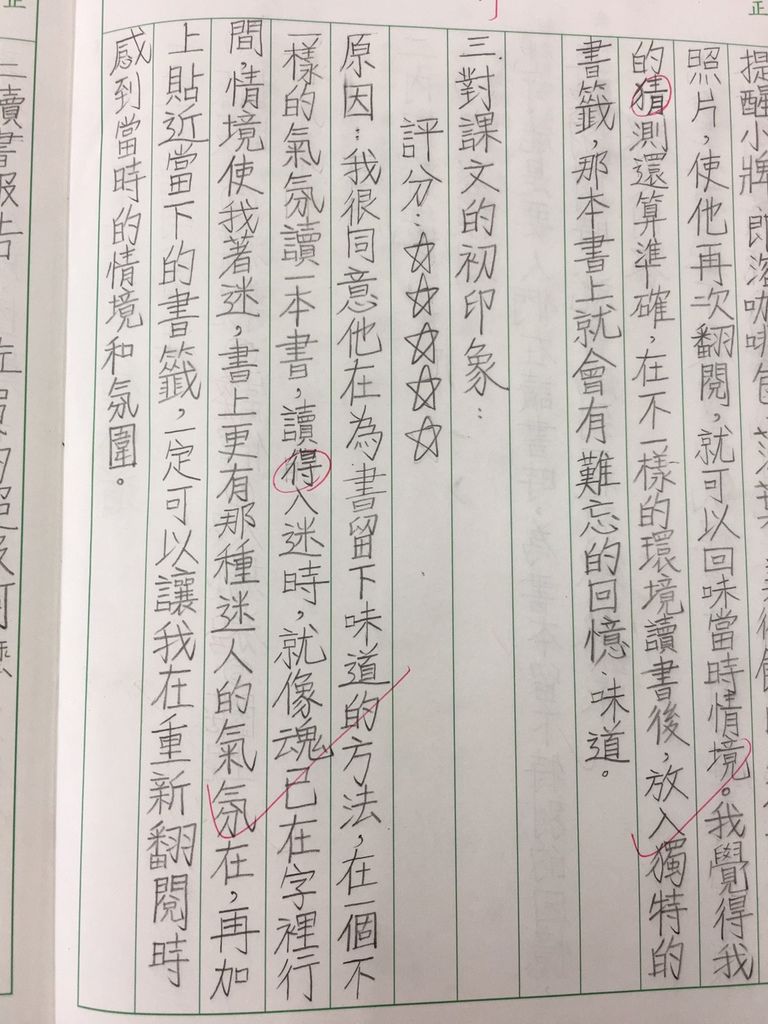 提醒小牌、即落咖啡包、落葉、
照片，使他再次翻閱，就可以回味當時情境。我覺得我
的猜測還算準確，在不一樣的環境讀書後，放入獨特的
書籤，那本書上就會有難忘的回憶、味道。
三、對課文的初印象：
評分：☆☆☆☆☆
原因：我很同意他在為書留下味道的方法，在一個不
一樣的氣氛讀一本書，讀得入迷時，就像魂已在字裡行
間，情境使我著迷，書上更有那種迷人的氣氛在，再加
上貼近當下的書籤，一定可以讓我在重新翻閱時
感到當時的情境和氛圍。
二讀書報告